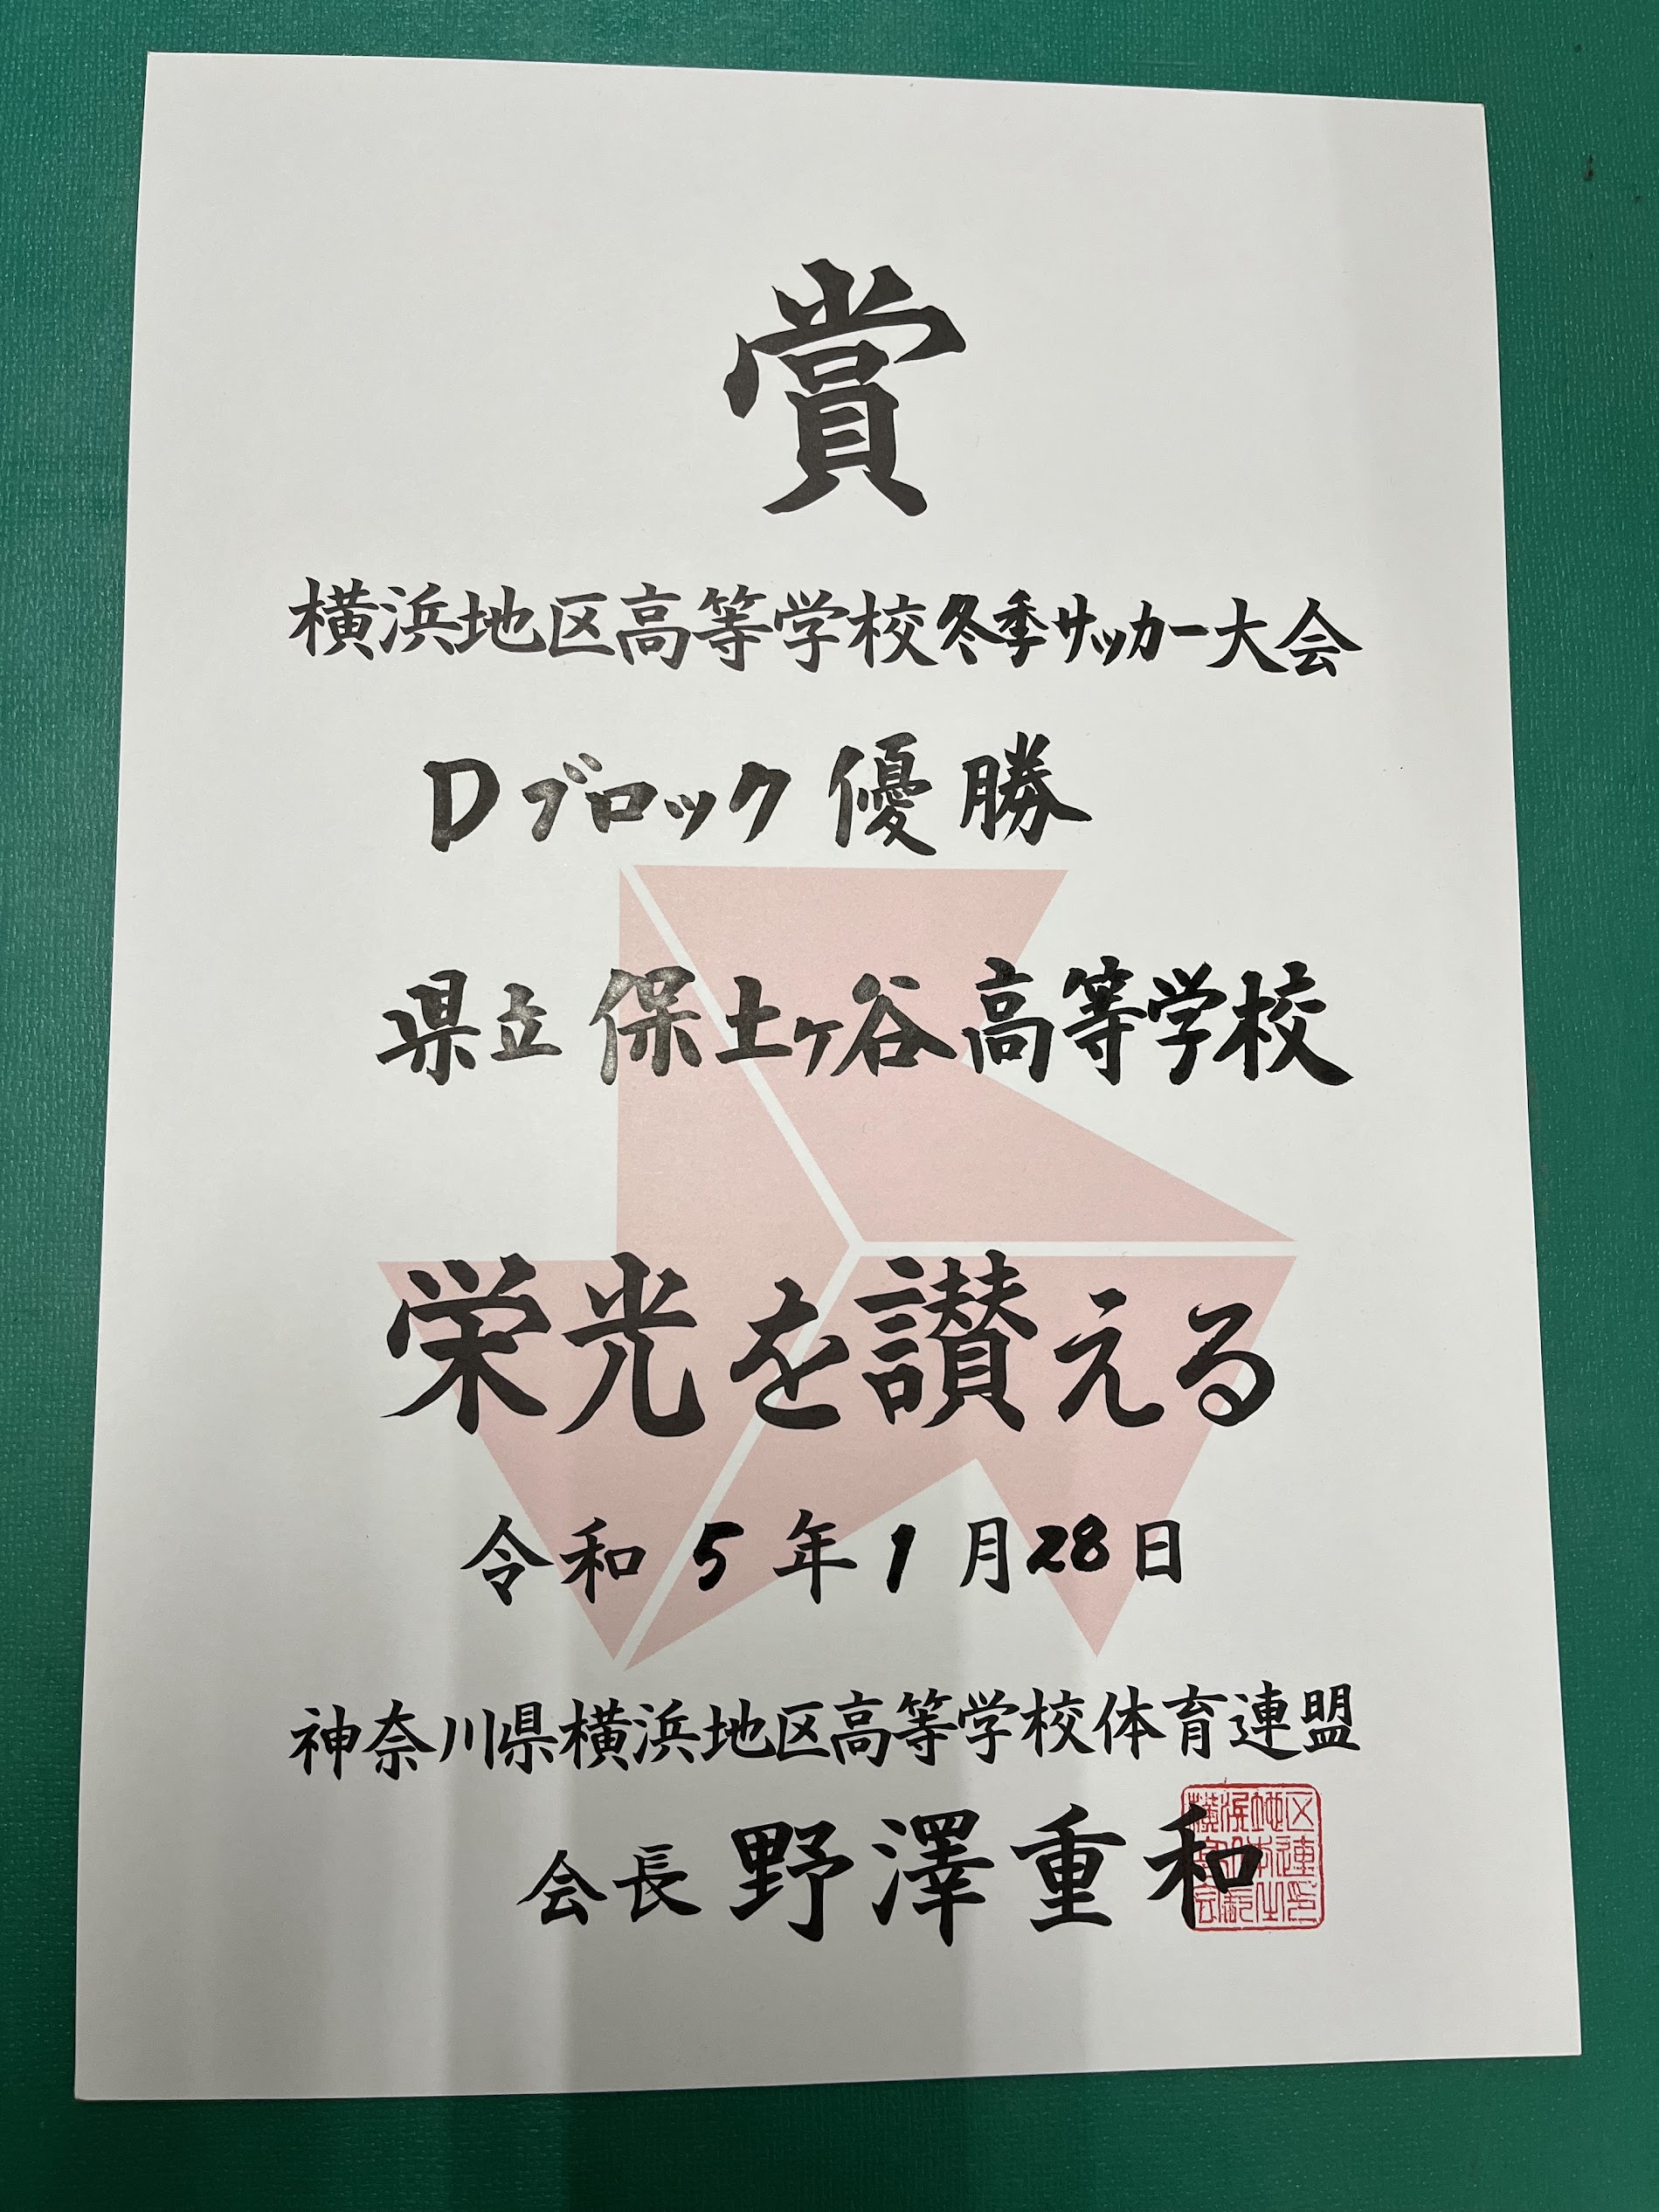 賞
横浜地区高等学校冬季サッカー大会
Dブロック 優勝
県立 保土ヶ谷 高等学校
栄光を讃える
令和 5 年 1 月 28 日
神奈川県横浜地区高等学校体育連盟
会長 野澤重和